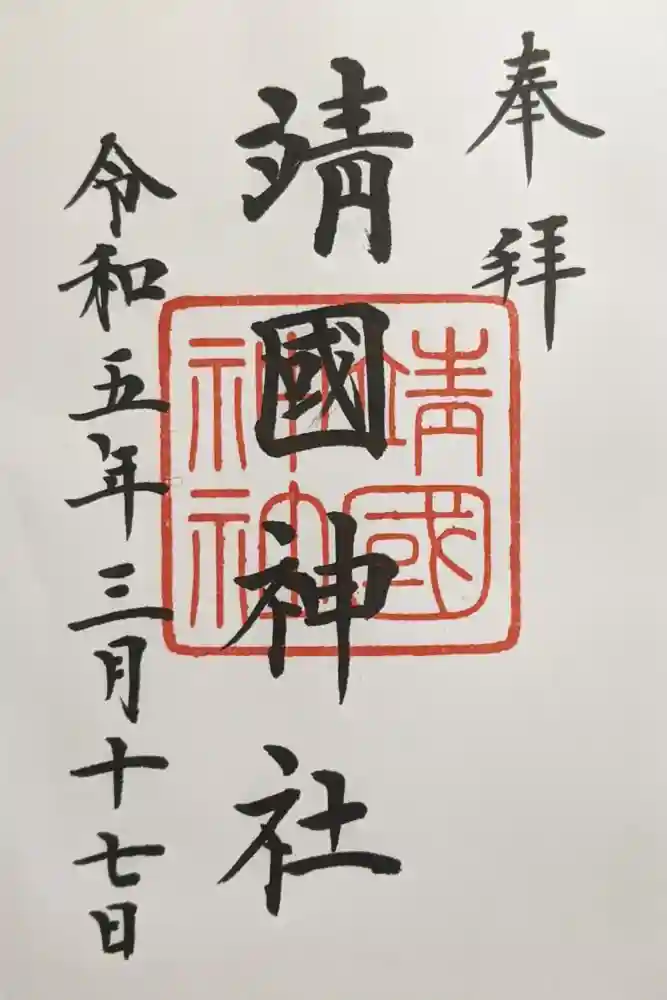 奉拝
靖國神社
靖國
神社
令和五年三月十七日